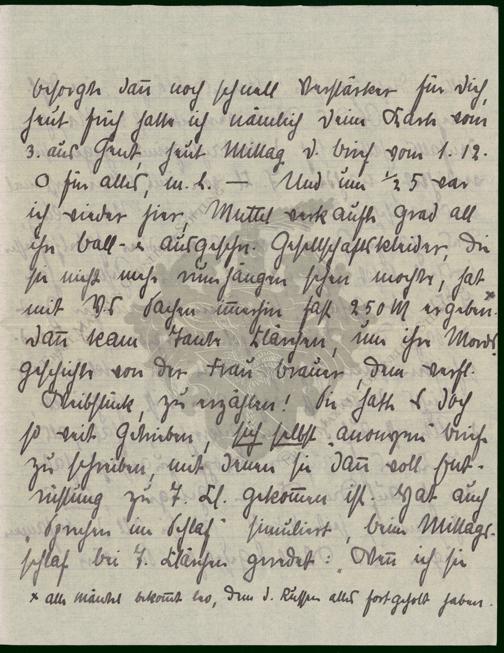 besorgte dan̄ noch schnell Verstärker für Dich,
heut früh hatte ich nämlich Deine Karte vom
3. aus Gent, heut Mittag d. Brief vom 1.12.
O für alles, m. L. — Und um ½ 5 war
ich wieder hier, Muttel verkaufte grad all
ihre Ball- u. ausgeschn. Gesellschaftskleider, die
sie nicht mehr rumhängen sehen mochte, hat
mit Sachen im̄erhin fast 250 M ergeben.ˣ
Dan̄ kam Tante Klärchen, um ihre Mords
geschichte von der Frau Brauer, dem verfl.
Weibstück, zu erzählen! Die hatte es doch
so weit getrieben, sich selbst "anonyme" Briefe
zu schreiben, mit denen sie dan̄ voll Ent-
rüstung zu T. Kl. gekom̄en ist. Hat auch
"Sprechen im Schlaf" simuliert, beim Mittags-
schlaf bei T. Klärchen geredet: "Wen̄ ich sie
x alle Mäntel bekom̄t Leo, dem d. Russen alles fortgeholt haben.